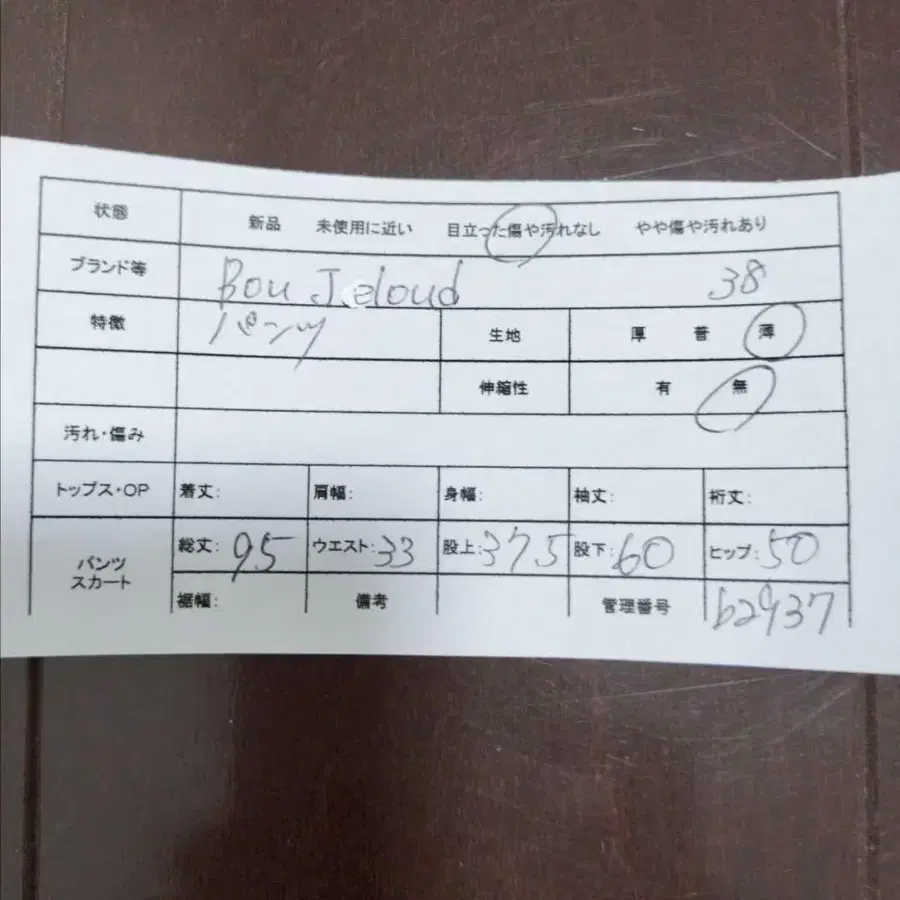 状態 新品 未使用に近い 目立った傷や汚れなし やや傷や汚れあり
ブランド等 Bou Jeloud 38
特徴 パンツ 生地 厚 普 薄
伸縮性 有 無
汚れ・傷み
トップス・OP 着丈: 肩幅: 身幅: 袖丈: 裄丈:
パンツ スカート 総丈: 95 ウエスト: 33 股上: 37.5 股下: 60 ヒップ: 50
裾幅: 備考 管理番号 b2937